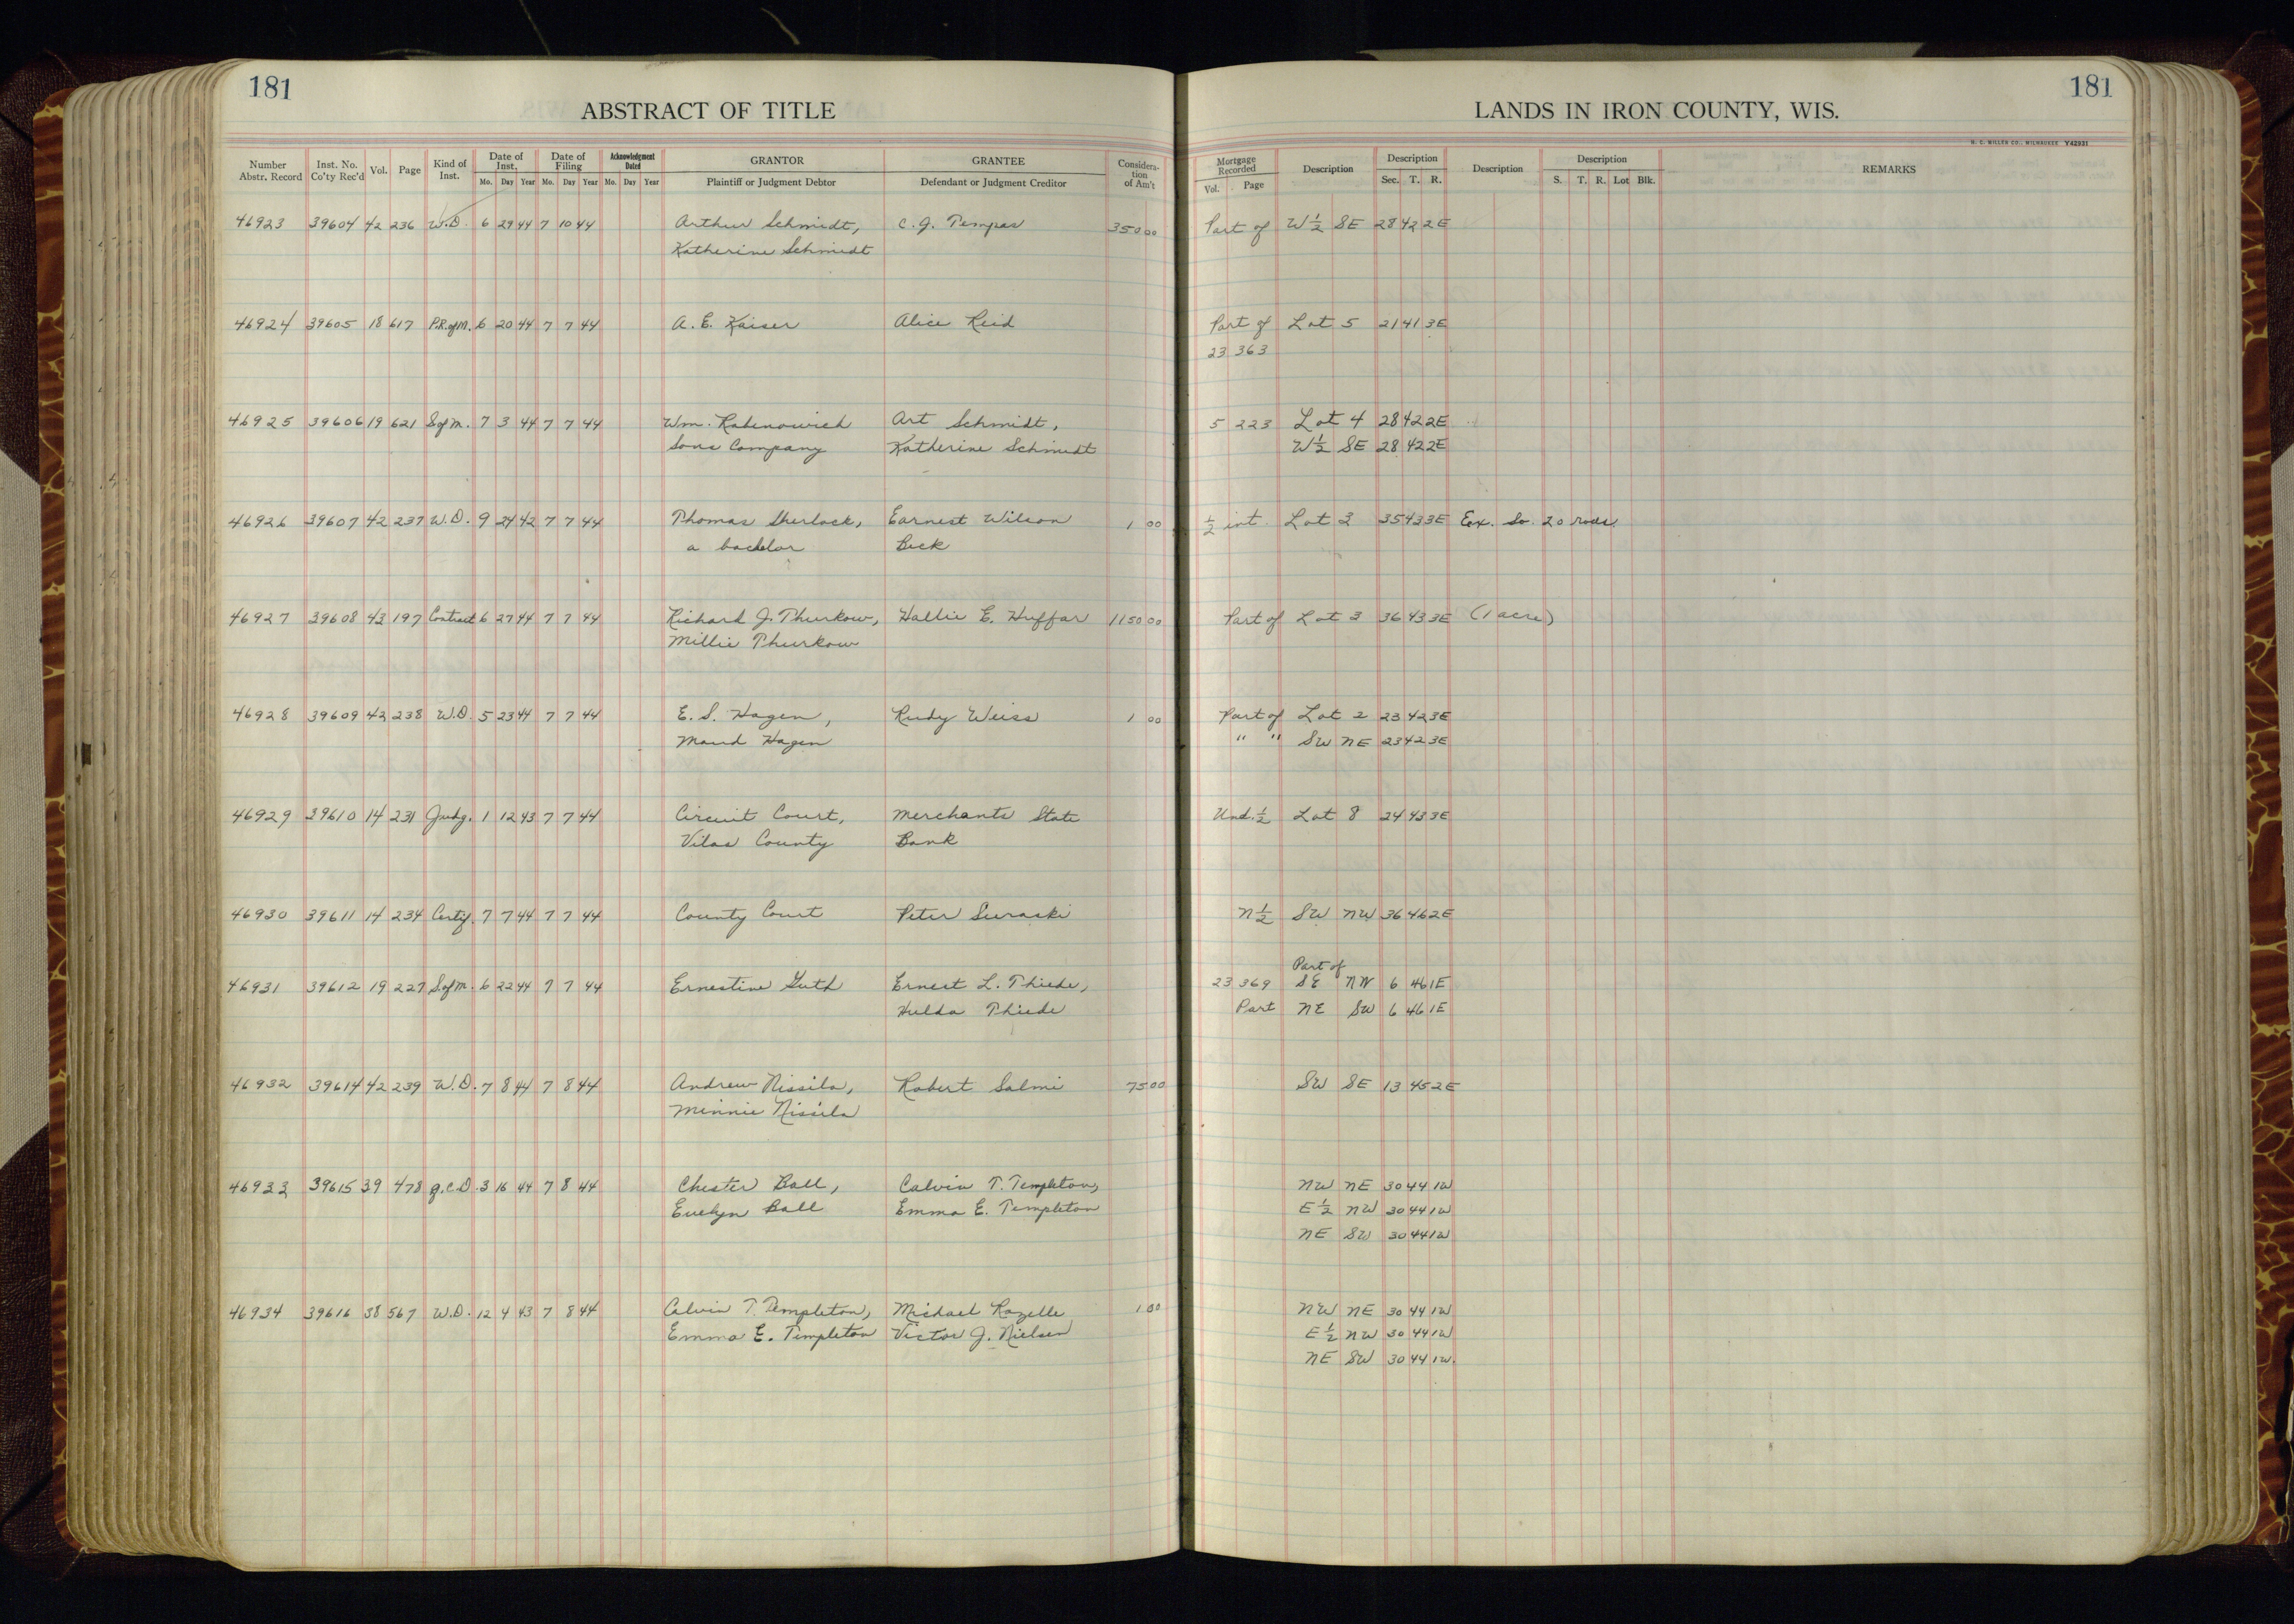 181
181
ABSTRACT OF TITLE
LANDS IN IRON COUNTY, WIS.
H. C. MILLER CO., MILWAUKEE Y42931
Number Abstr. Record Inst. No. Co'ty Rec'd Vol. Page Kind of Inst. Date of Inst. Mo. Day Year Date of Filing Mo. Day Year Acknowledgment Dated Mo. Day Year GRANTOR Plaintiff or Judgment Debtor GRANTEE Defendant or Judgment Creditor Consideration of Am't Mortgage Recorded Vol. Page Description Description Sec. T. R. Description Description S. T. R. Lot Blk. REMARKS
46923 39604 42 236 W.D. 6 29 44 7 10 44 Arthur Schmidt, C. J. Tempas 350 00 Part of W 1/2 SE 28 42 2E
Katherine Schmidt
46924 39605 18 617 P.R. of M. 6 20 44 7 7 44 A. E. Kaiser Alice Reid Part of Lot 5 21 41 3E
23 363
46925 39606 19 621 S of M. 7 3 44 7 7 44 Wm. Rabenowich Art Schmidt, 5 223 Lot 4 28 42 2E
Sons Company Katherine Schmidt W 1/2 SE 28 42 2E
46926 39607 42 237 W.D. 9 24 42 7 7 44 Thomas Sherlock, Earnest Wilson 1 00 1/2 int. Lot 3 35 43 3E Eex. So. 20 rods.
a bachelor Beck
46927 39608 43 197 Contract 6 27 44 7 7 44 Richard J. Thurkow, Hallie E. Huffar 1150 00 Part of Lot 3 36 43 3E (1 acre)
Millie Thurkow
46928 39609 42 238 W.D. 5 23 44 7 7 44 E. S. Hagen, Rudy Weiss 1 00 Part of Lot 2 23 42 3E
Maud Hagen " " SW NE 23 42 3E
46929 39610 14 231 Judg. 1 12 43 7 7 44 Circuit Court, Merchants State Und. 1/2 Lot 8 24 43 3E
Vilas County Bank
46930 39611 14 234 Certif. 7 7 44 7 7 44 County Court Peter N 1/2 SW NW 36 46 2E
Part of
46931 39612 19 227 S. of M. 6 22 44 7 7 44 Ernestine Guth Ernest L. Thiede, 23 369 SE NW 6 46 1E
Hulda Thiede Part NE SW 6 46 1E
46932 39614 42 239 W.D. 7 8 44 7 8 44 Andrew Nissila, Robert Salmi 75 00 SW SE 13 45 2E
Minnie Nissila
46933 39615 39 478 Q.C.D. 3 16 44 7 8 44 Chester Ball, Calvin T. Templeton, NW NE 30 44 1W
Evelyn Ball Emma E. Templeton E 1/2 NW 30 44 1W
NE SW 30 44 1W
46934 39616 38 567 W.D. 12 4 43 7 8 44 Calvin T. Templeton, Michael Rozelle 1 00 NW NE 30 44 1W
Emma E. Templeton Victor J. Nielsen E 1/2 NW 30 44 1W
NE SW 30 44 1W.